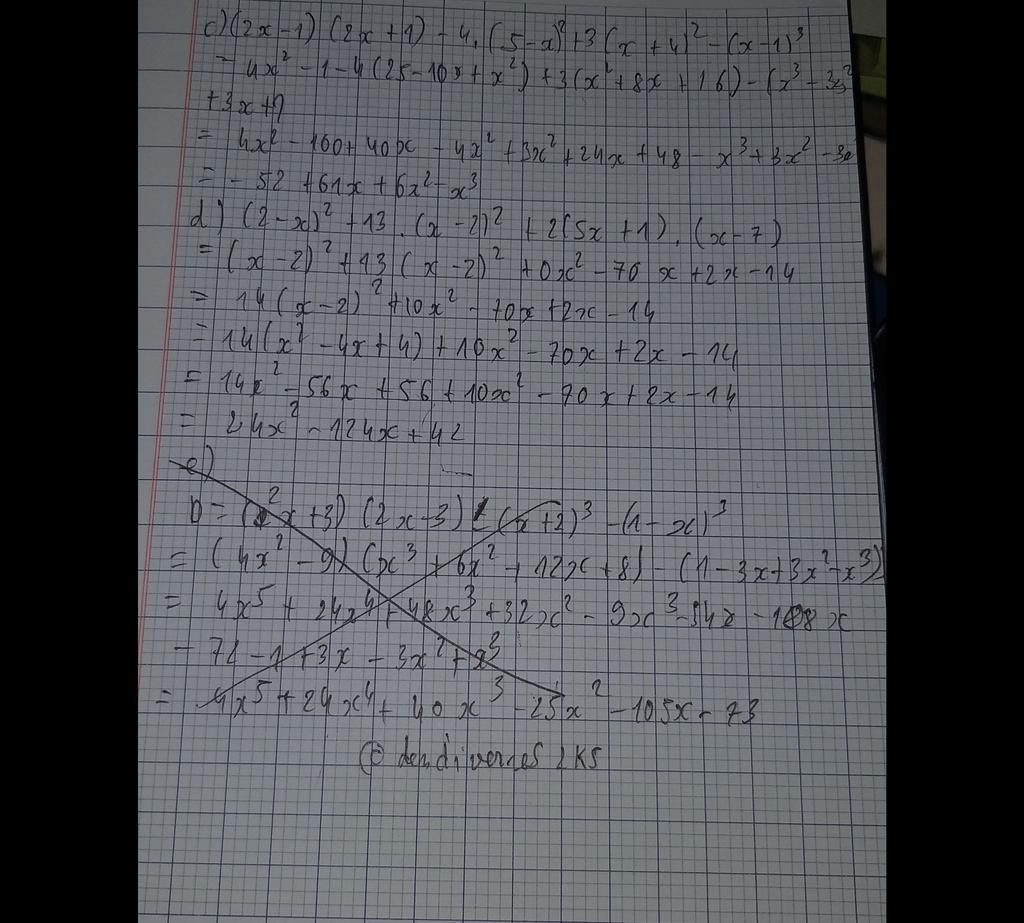 c) (2x-1) (2x+1) - 4. (5-x)² + 3 (x+4)² - (x-1)³
= 4x² - 1 - 4 (25 - 10x + x²) + 3(x² + 8x + 16) - (x³ - 3x²
+3x+1
= 4x² - 100 + 40x - 4x² + 3x² + 24x + 48 - x³ + 3x² - 3x
= - 52 + 61x + 6x² - x³
d) (2-x)² + 13. (x-2)² + 2(5x+1). (x-7)
= (x-2)² + 13 (x-2)² + 0x² - 70x + 2x - 14
= 14(x-2)² + 10x² - 70x + 2x - 14
= 14(x² - 4x + 4) + 10x² - 70x + 2x - 14
= 14x² - 56x + 56 + 10x² - 70x + 2x - 14
= 24x² - 124x + 42
e)
D = (2x+3) (2x-3) (x+2)³ - (1-x)³
= (4x² - 9) (x³ + 6x² + 12x + 8) - (1 - 3x + 3x² - x³)
= 4x⁵ + 24x⁴ + 48x³ + 32x² - 9x³ - 54x - 108x
- 72 - 1 + 3x - 3x² + x³
= 4x⁵ + 24x⁴ + 40x³ - 25x² - 105x - 73